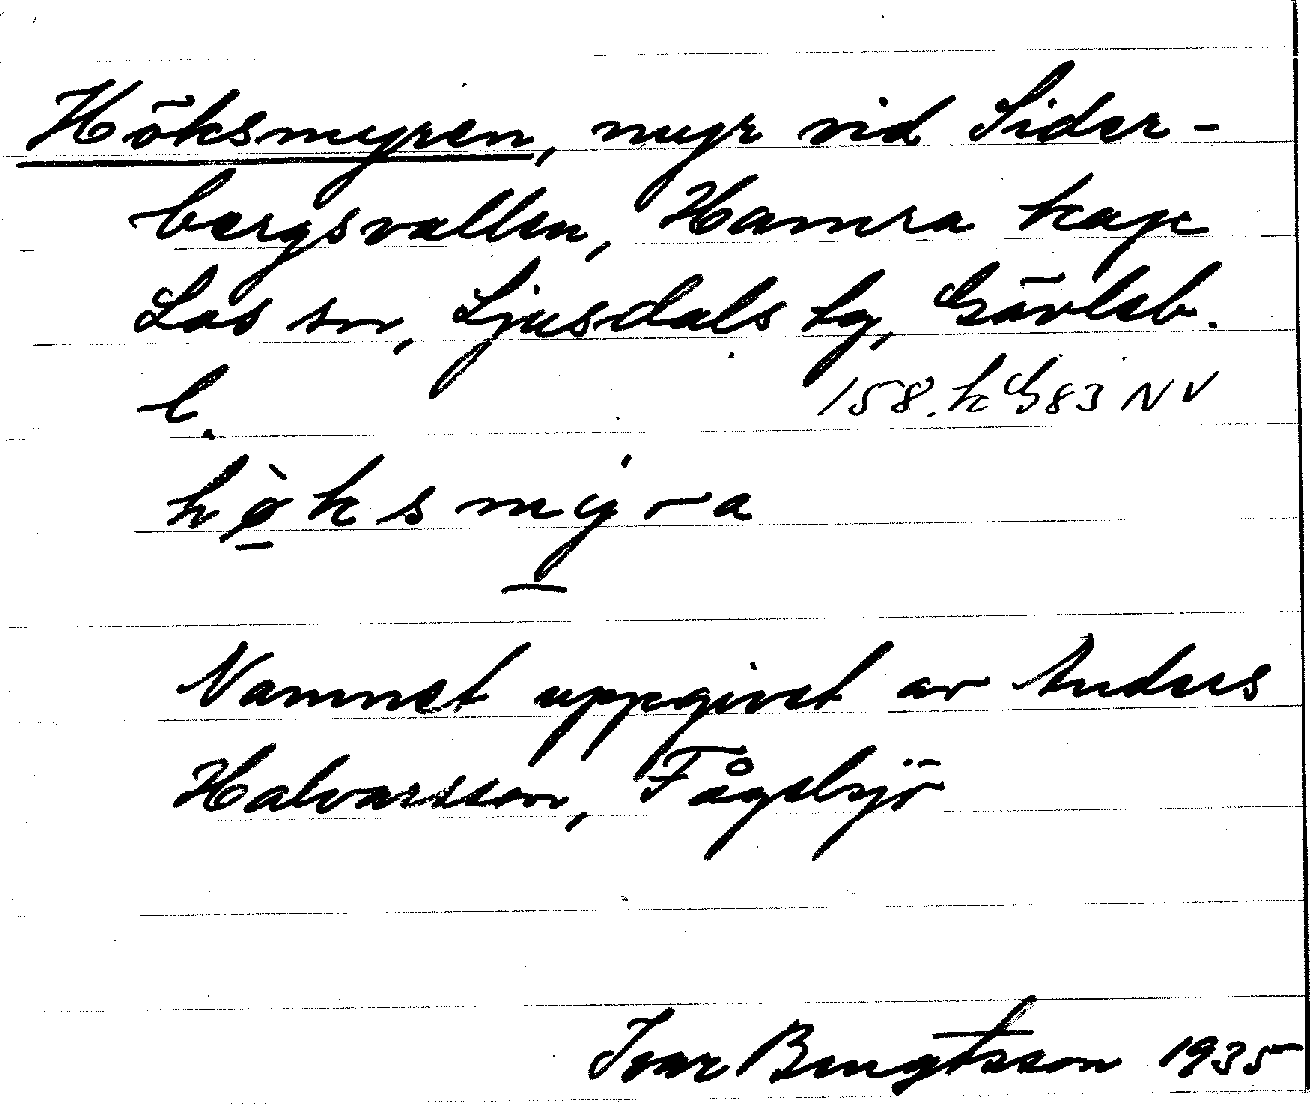 Höksmyren, myr vid Sider-
bergsvallen, Hamra kap
Los sn, Ljusdals tg, Gävleb.
l.
158. k G83 NV
hø̀ksmýra
Namnet uppgivet av Anders
Halvarsson, Fågelsjö
Ivar Bengtsson 1935